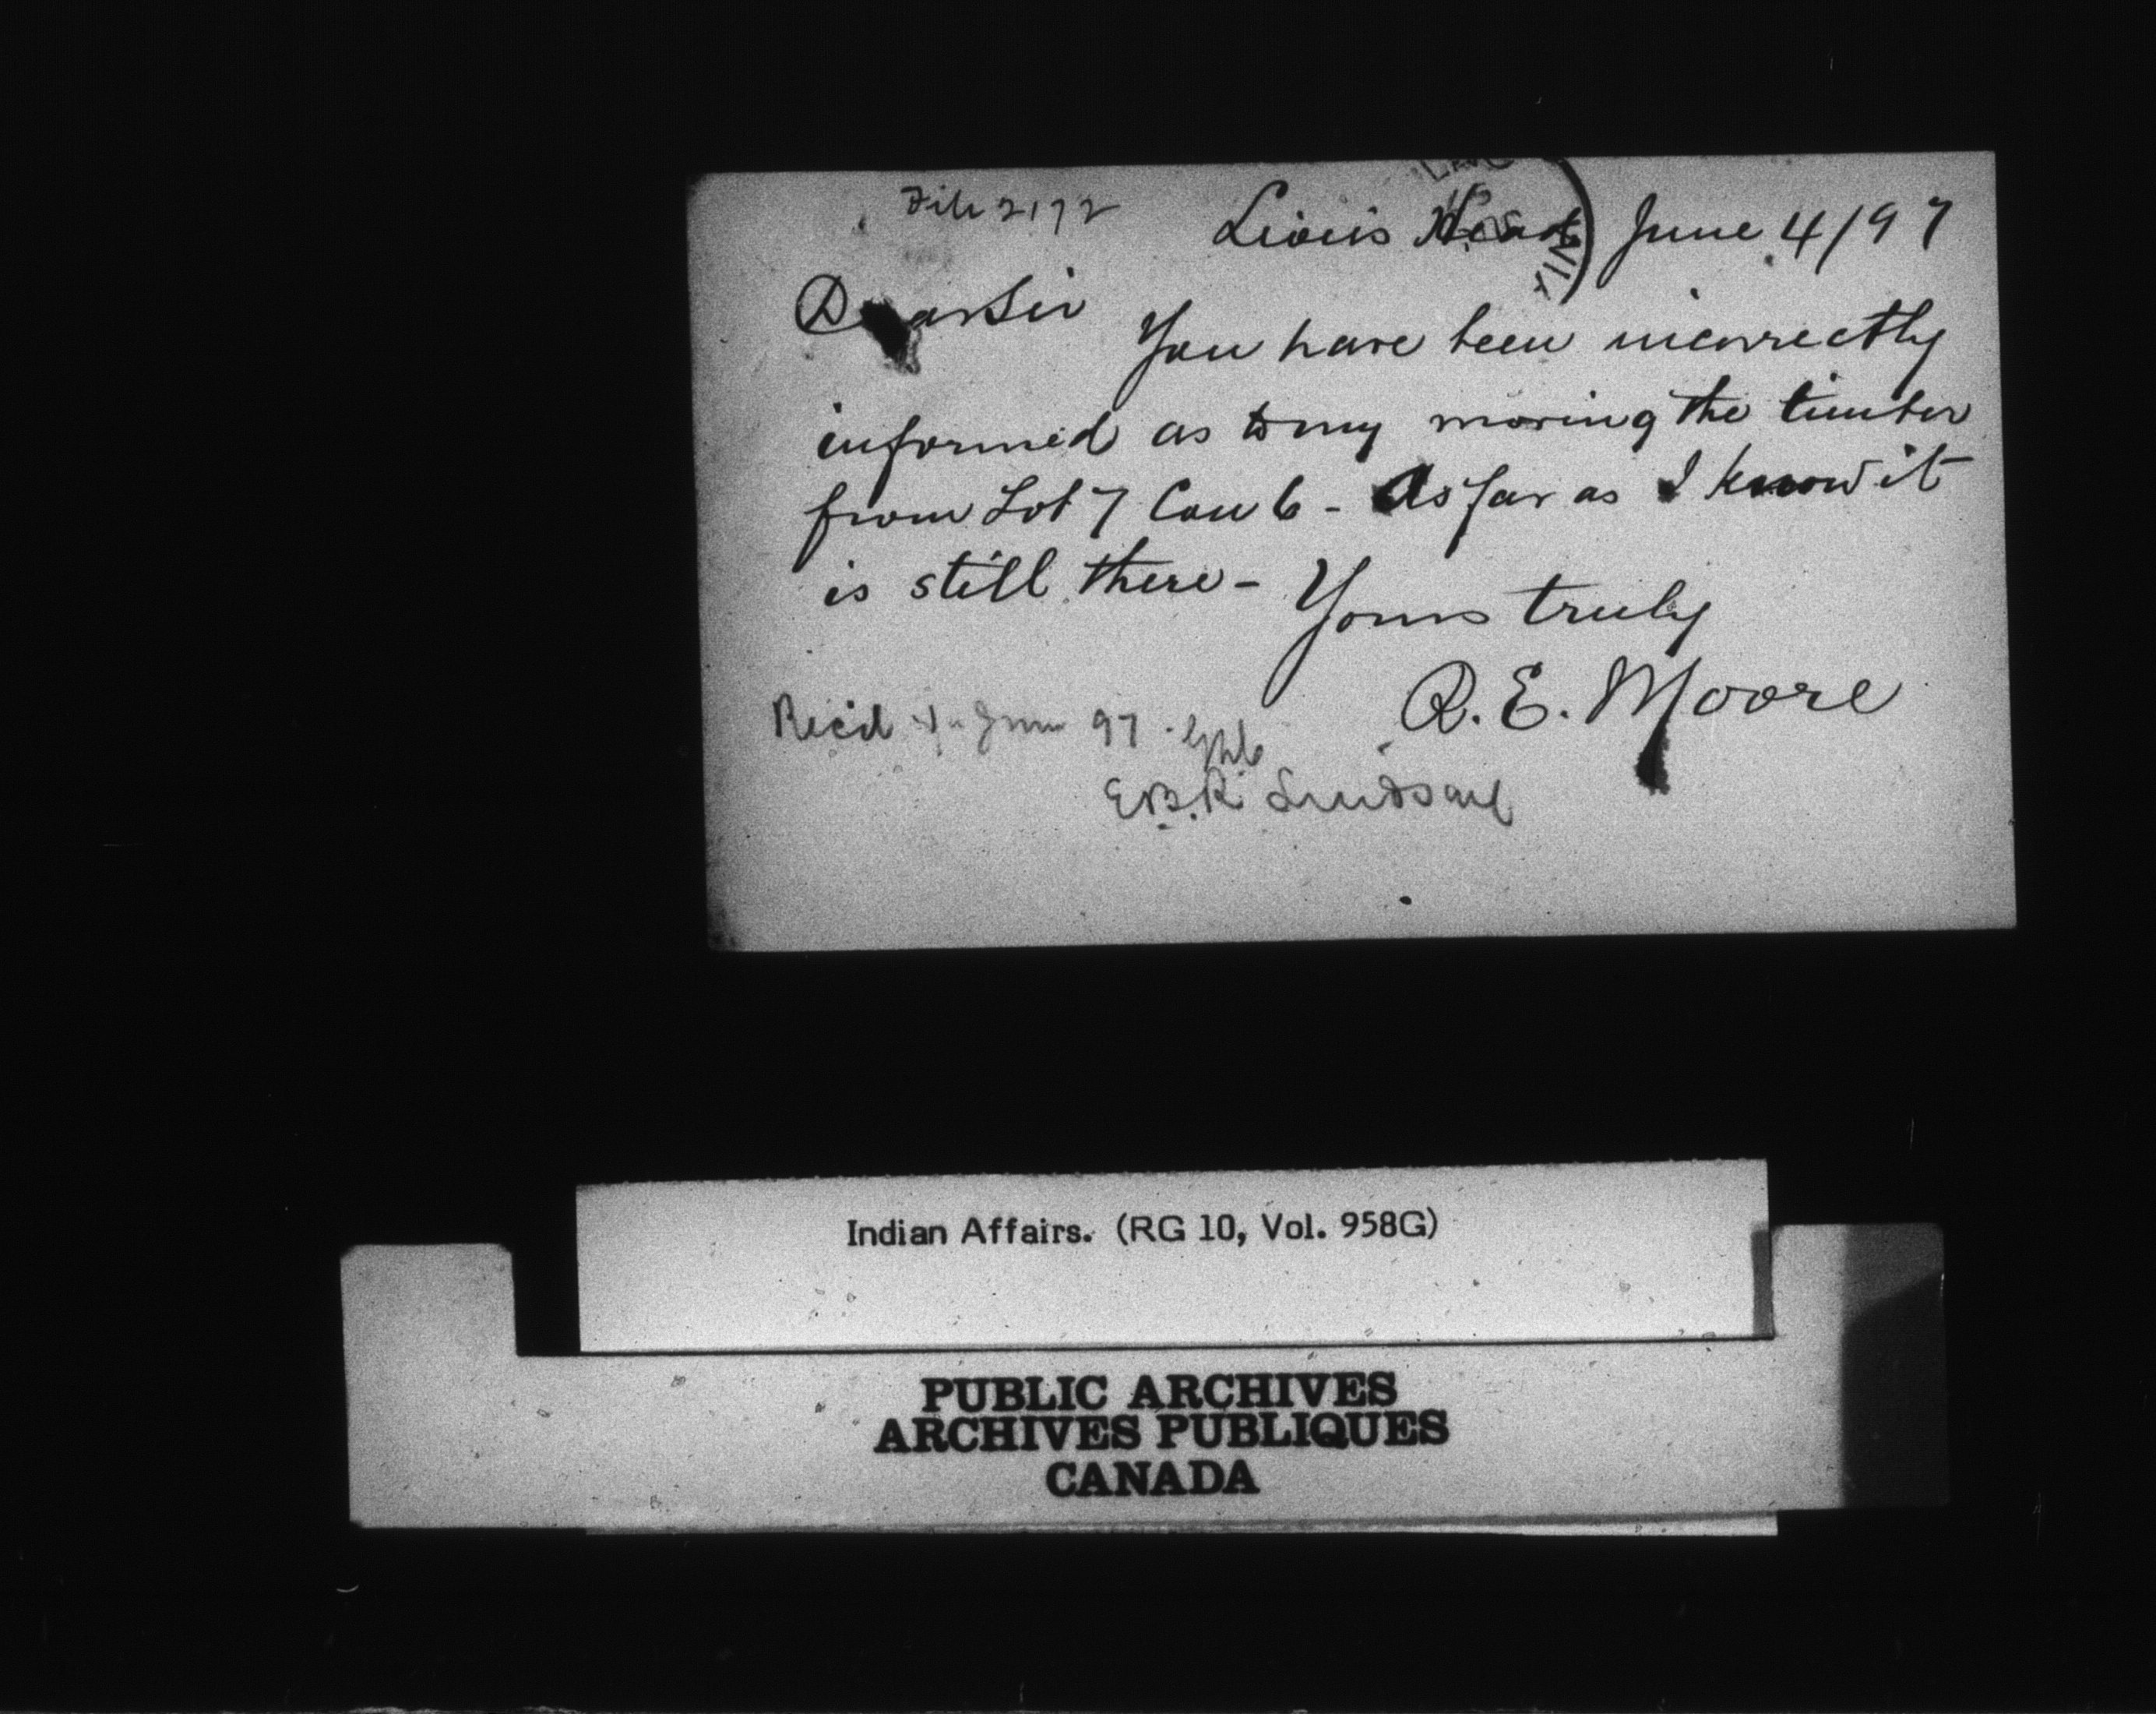 File 2172
Lion's Head June 4/97
Dear Sir
You have been incorrectly
informed as to my moving the timber
from Lot 7 Con 6 - As far as I know it
is still there -
Yours truly
R. E. Moore
Rec'd June 97.
E.B.R. Lindsay
Indian Affairs. (RG 10, Vol. 958G)
PUBLIC ARCHIVES
ARCHIVES PUBLIQUES
CANADA